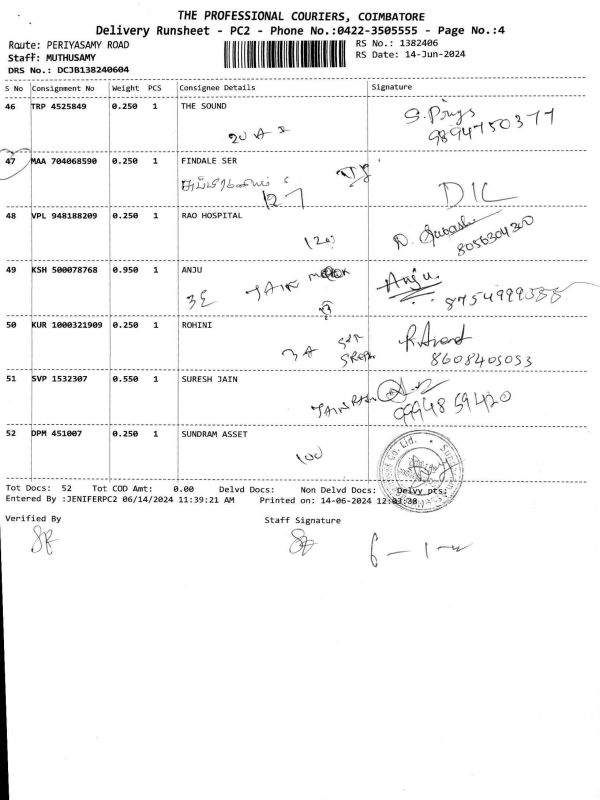 THE PROFESSIONAL COURIERS, COIMBATORE
Delivery Runsheet - PC2 - Phone No.:0422-3505555 - Page No.:4
Route: PERIYASAMY ROAD RS No.: 1382406
Staff: MUTHUSAMY RS Date: 14-Jun-2024
DRS No.: DCJB138240604
S No Consignment No Weight PCS Consignee Details Signature
46 TRP 4525849 0.250 1 THE SOUND
S. Priya
9894750377
20 A
47 MAA 704068590 0.250 1 FINDALE SER
127
DIL
48 VPL 948188209 0.250 1 RAO HOSPITAL
120
8056304300
49 KSH 500078768 0.950 1 ANJU
Anju.
3E JAIN
50 KUR 1000321909 0.250 1 ROHINI
3A
8608405053
51 SVP 1532307 0.550 1 SURESH JAIN
9994859420
52 DPM 451007 0.250 1 SUNDRAM ASSET
100
Tot Docs: 52 Tot COD Amt: 0.00 Delvd Docs: Non Delvd Docs: Delvy pts:
Entered By :JENIFERPC2 06/14/2024 11:39:21 AM Printed on: 14-06-2024 12:03:38
Verified By Staff Signature